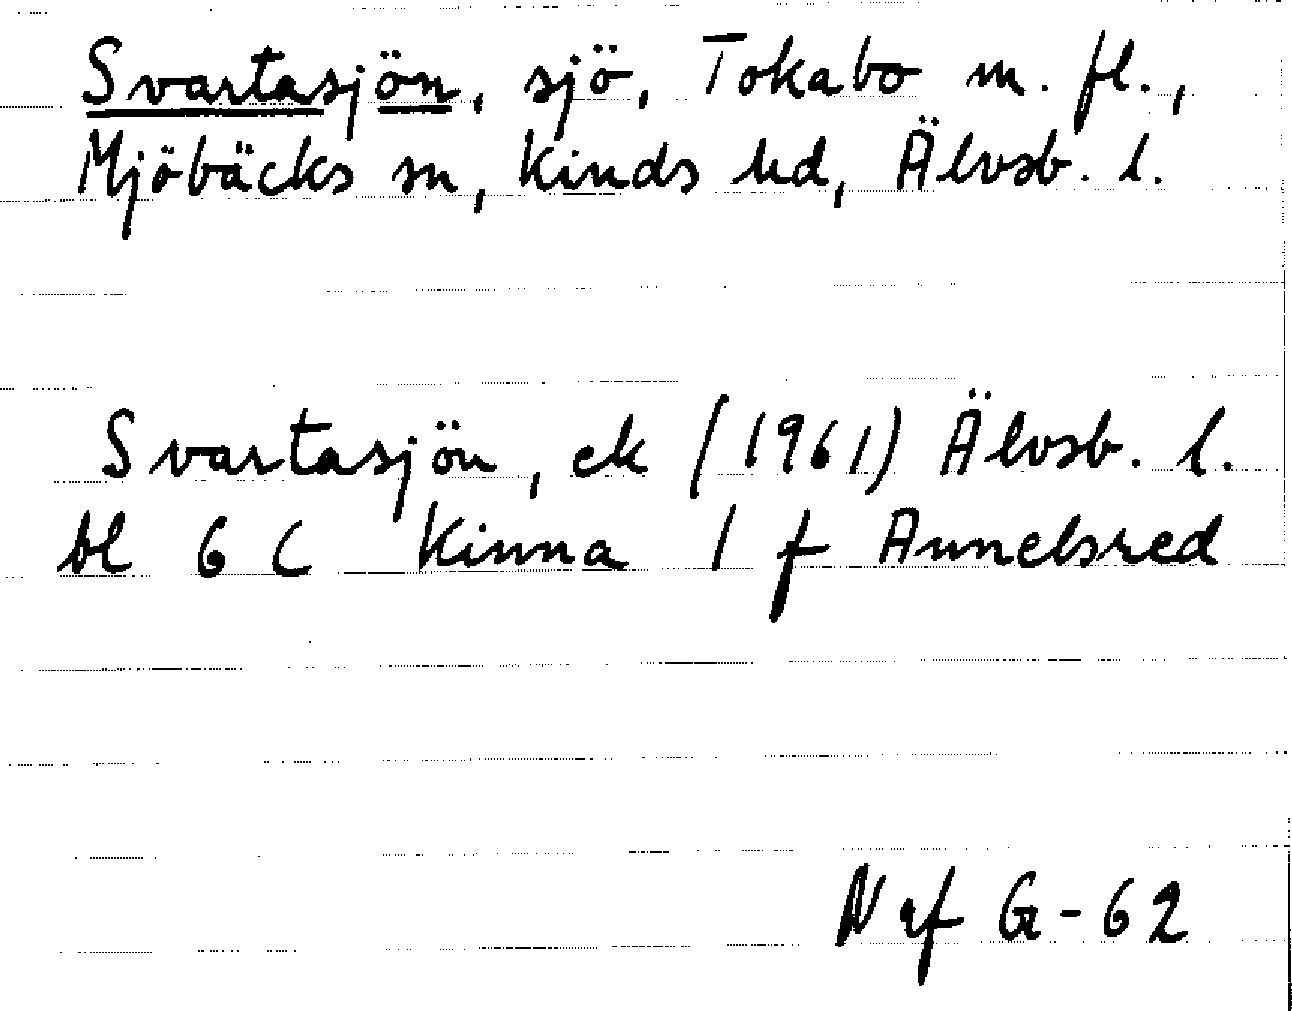 Svartasjön, sjö, Tokabo m. fl.,
Mjöbäcks sn, Kinds hd, Älvsb. l.
Svartasjön, ek (1961) Älvsb. l.
bl 6 C Kinna 1 f Annelsred
Naf G-62